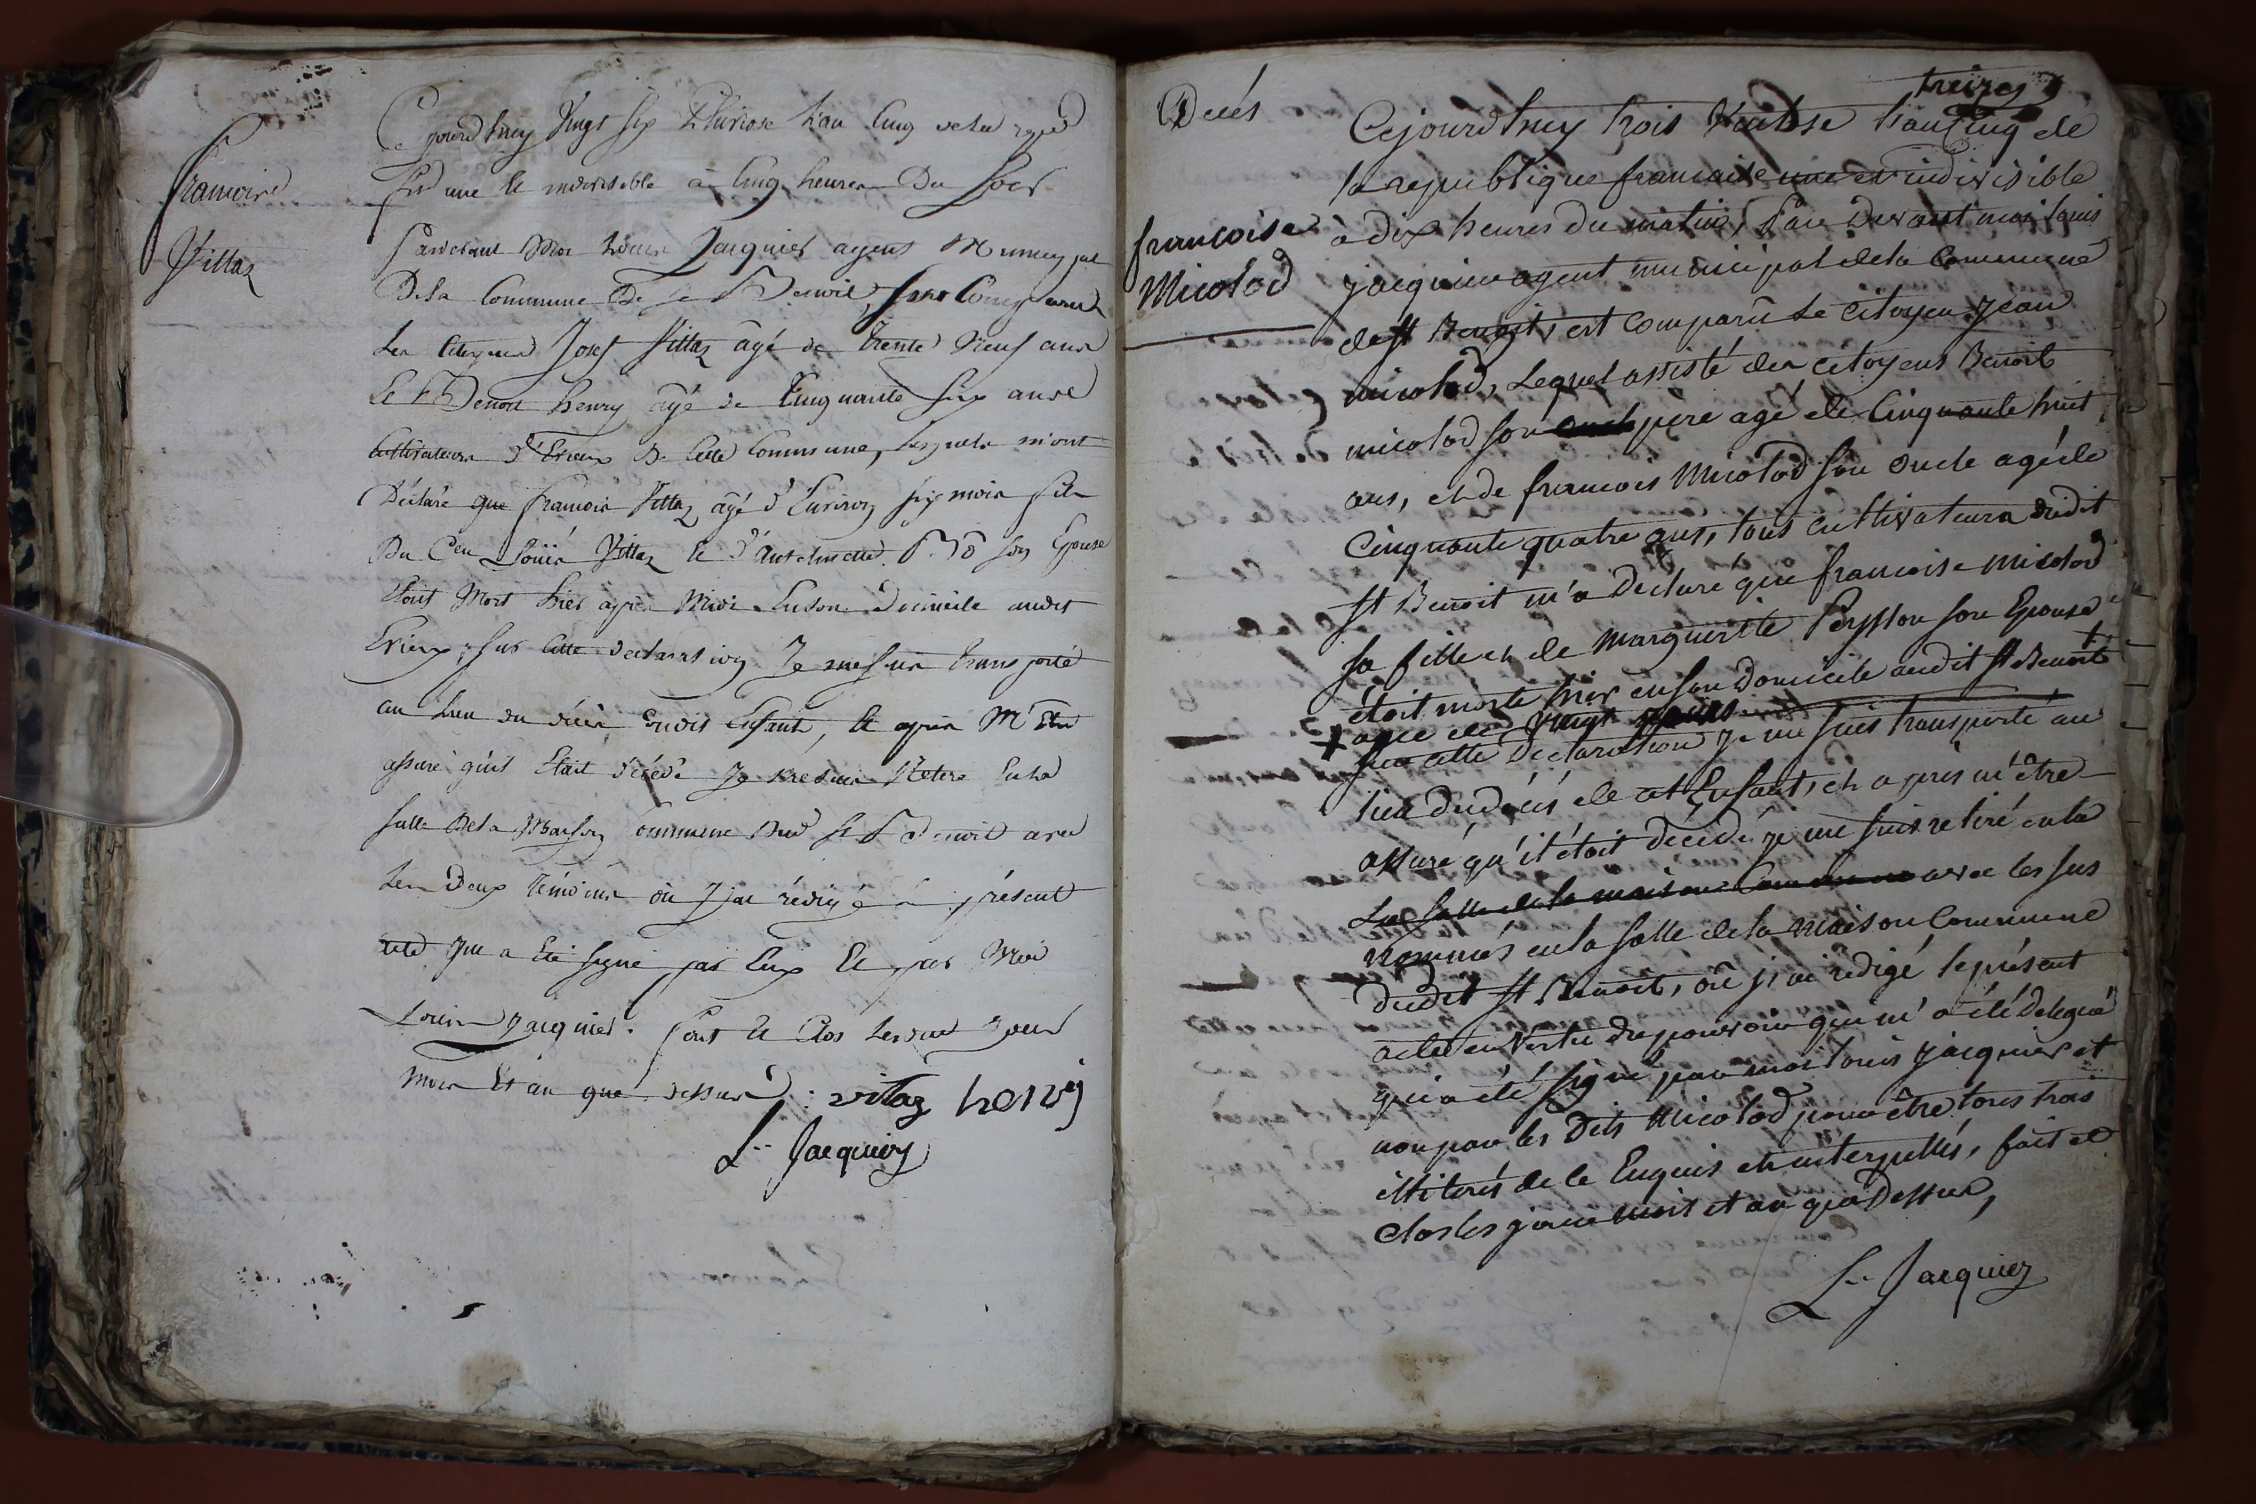 francois
Vittaz
Cejourdhuy Vingt Six Pluviose L'an Cinq dela rque
fse une et indivisible à Cinq heures Du Soir
Pardevant Moi Louis Jacquier agent Municipal
Dela Commune De St Benoit, sont Comparus
Les Citoyens Josef Vittaz âgé de Trente Neuf ans
et Benoit henry âgé de Cinquante Six ans
Cultivateurs d'Erieux De Cette Commune, Lesquels m'ont
Déclaré que francois Vittaz âgé d'Environ Six mois fils
Du Cen Loüis Vittaz et d'Anthelmette son Epouse
Etoit Mort hier après Midi En son Domicile audit
Erieux, sur Cette declaration Je me suis Transporté
au Lieu du décès dudit Enfant, et après M'être
assuré qu'il Etait décédé Je me suis Retiré En la
salle Dela Maison Commune Dud St Benoit avec
Les Deux Témoins où J'ai rédigé le présent
acte qui a Eté signé par Eux Et par Moi
Louis Jacquier. fait et Clos Les dits Jour
mois Et an que dessus : vitaz henry
L. Jacquier
treize
Decés
francoise
Micolod
Cejourdhuy trois Ventose l'an Cinq de
la republique francaise une et indivisible
à dix heures du matin, Par Devant moi Louis
jacquier agent municipal dela Commune
de St Benoit, est comparû Le Citoyen Jean
micolod, Lequel assisté des citoyens Benoit
micolod son oncle père agé de Cinquante huit
ans, et de francois Micolod son oncle agé de
Cinquante quatre ans, tous cultivateurs dudit
St Benoit m'a Declaré que francoise micolod
sa fille et de Marguerite Peysson son Epouse
étoit morte hier en son Domicile audit St Benoit +
+ agée de vingt jours
sur cette Declaration je me suis transporté au
lieu du décés de cet Enfant, et apres m'être
assuré qu'il étoit décédé je me suis retiré en la
La salle de la maison Commune avec les sus
Nommés en la salle dela Maison Commune
dudit St Benoit, où j'ai redigé le présent
acte en vertu du pouvoir qui m'a été Delegué
qui a été signé par moi Louis jacquier et
non par les Dits Micolod pour être tous trois
illiterés de le Enquis et interpellés, fait et
clos les jour mois et an que Dessus,
L. Jacquier